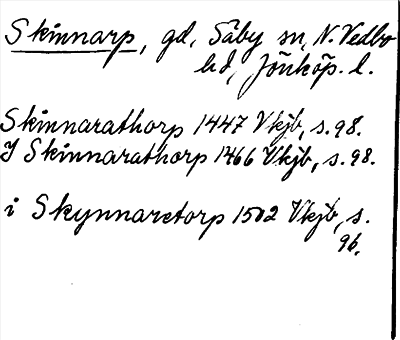 Skinnarp, gd, Säby sn, N. Vedbo
hd, Jönköp. l.
Skinnarathorp 1447 Vkjb, s. 98.
J Skinnarathorp 1466 Vkjb, s. 98.
i Skynnaretorp 1502 Vkjb, s.
96.